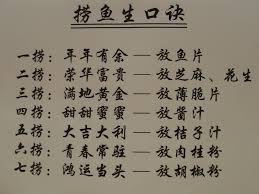 捞鱼生口诀
一捞：年年有余—放鱼片
二捞：荣华富贵—放芝麻、花生
三捞：满地黄金—放薄脆片
四捞：甜甜蜜蜜—放酱汁
五捞：大吉大利—放桔子汁
六捞：青春常驻—放肉桂粉
七捞：鸿运当头—放胡椒粉